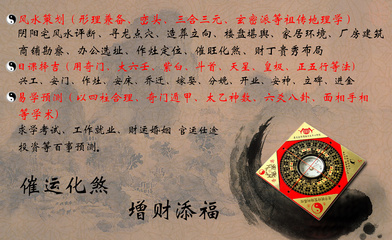 风水策划（形理兼备、峦头、三合三元、玄密派等祖传地理学）
阴阳宅风水评断、寻龙点穴、造葬立向、楼盘堪舆、家居环境、厂房建筑
商铺勘察、办公选址、作灶定位、催旺化煞、财丁贵秀布局
日课择吉（用奇门、大六壬、紫白、斗首、天星、皇极、正五行等法）
兴工、安门、作灶、安床、乔迁、嫁娶、分娩、开业、安神、立碑、进金
易学预测（以四柱合理、奇门遁甲、太乙神数、六爻八卦、面相手相
等学术）
求学考试、工作就业、财运婚姻 官运仕途
投资等百事预测。
催运化煞
增财添福